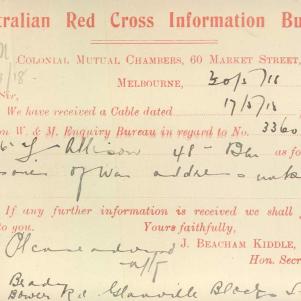 tralian Red Cross Information Bu
COLONIAL MUTUAL CHAMBERS, 60 MARKET STREET,
/18. MELBOURNE, 30/5/18
Sir,
We have received a Cable dated 17/5/18
om W. & M. Enquiry Bureau in regard to No. 3360
Allison 48 Bn as fo
of War address
If any further information is received we shall
to you. Yours faithfully,
J. BEACHAM KIDDLE,
Hon. Secr
Please
Brady
Bower Rd Glanville Blocks S